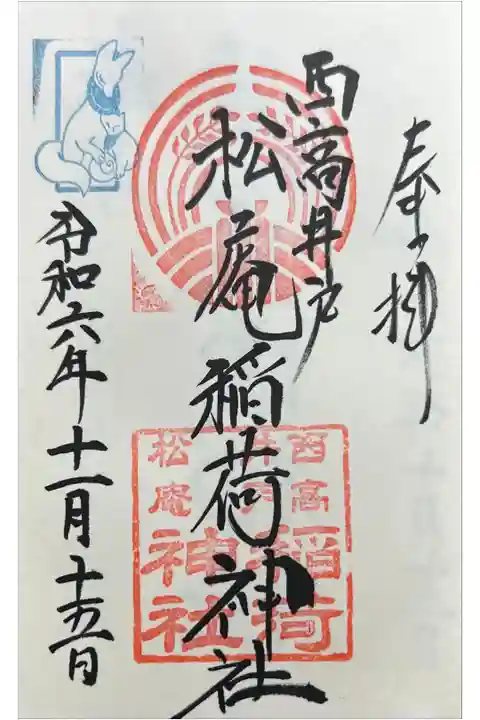 奉拝
西高井戸
松庵稲荷神社
西高井戸
松庵
稲荷
神社
令和六年十一月十五日